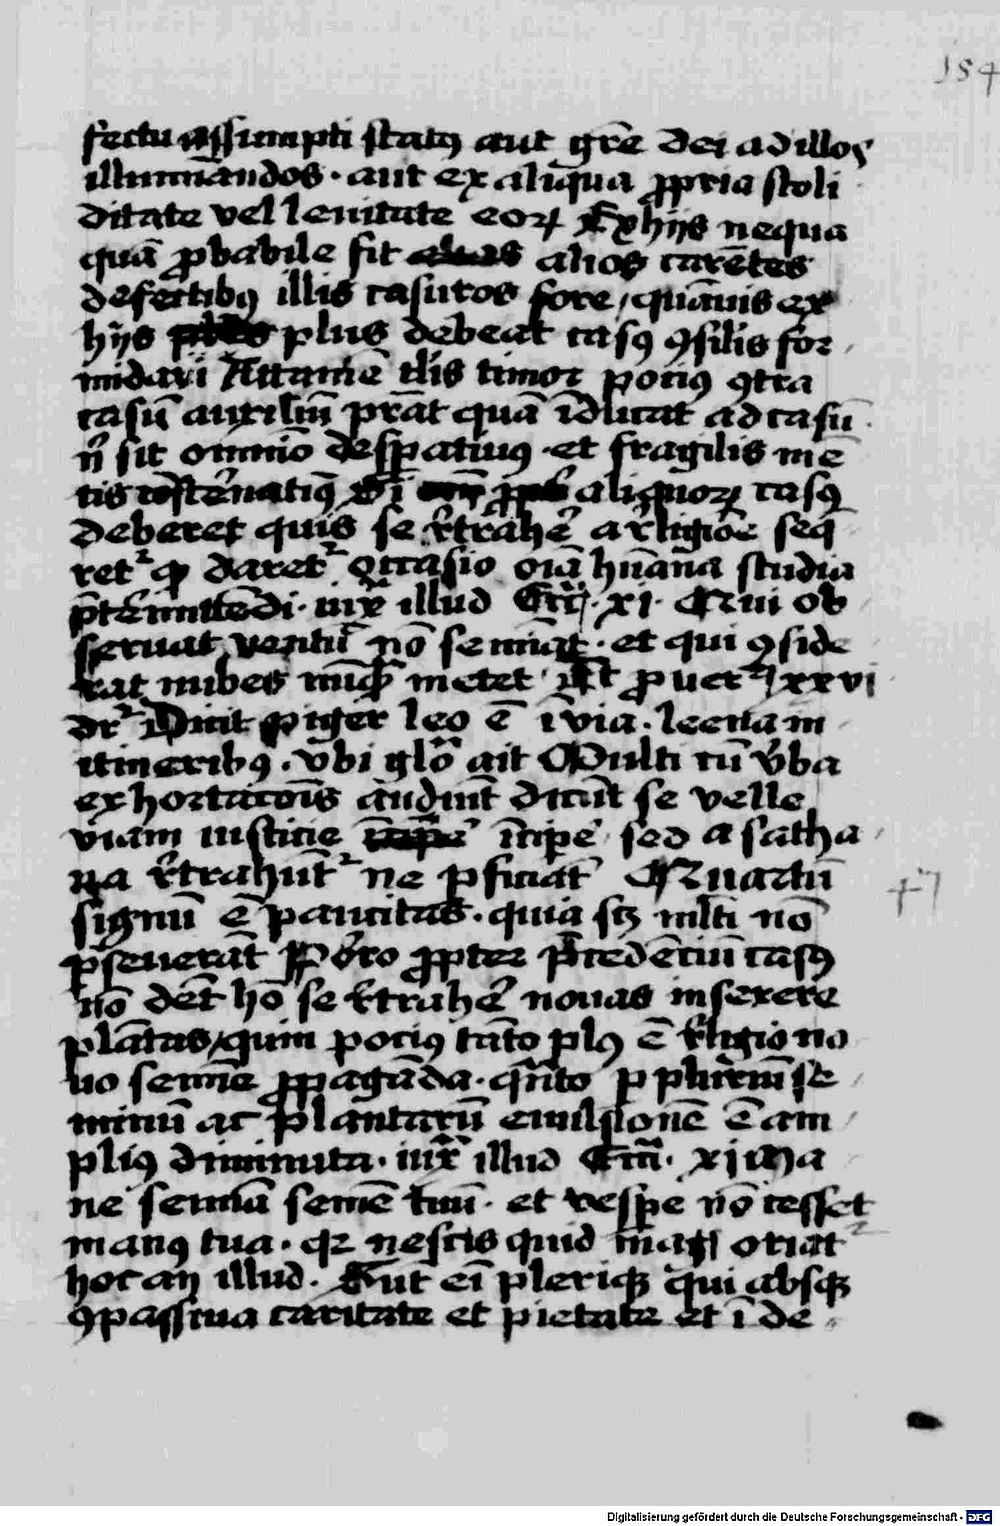 154
fectu assumpti statꝰ aut gr̄e dei ad illoꝝ
illumināndos · aut ex aliqua ꝓpria stoli
ditate vel leuitate eoꝝ Ex hijs nequa
quā ꝓbabile sit alios carētes
defectibꝰ illis casuros fore / quāuis ex
hijs plus debeat casꝰ ꝯsilis for
midari Attamē tlis timor pociꝰ ꝯtra
casū auxiliū prāt quā īducat ad casū
n̄ sit omnīo despatiuꝰ · et fragilis mē
tis cōst̓natiuꝰ Si aliquoꝝ casꝰ
deberet quis se r̓trahē a r̓ligiōe seq̄
ret᷑ ꝙ daret᷑ occasio oīa hūana studia
p̄t̓mittēdi · iuxͣ illud Eccͥ · xi · Qui ob
seruat ventū nō semīat · et qui ꝯside
rat nubes nūqͣ metet Et ꝓuer xxvi
dr᷑ Dicit piger leo ē ī via · leena in
itineribꝰ · vbi glō ait Multi cū v̓ba
exhortacōis audiūt dicūt se velle
viam iusticie īcipe sed a satha
na r̓trahūt᷑ ne ꝑficiāt Quartū
47
signū ē paucitas · quia sꝫ mlti nō
ꝑseuerāt Porro ꝓpter p̄cedēciū casꝰ
nō det hō se r̓trahē nouas inserere
plātas / quin pociꝰ tāto plꝰ ē r̓ligio no
uo semīe ꝓpagāda · qͣnto ꝑ phͥrimū se
minū ac plantarū euulsionē ē am
pliꝰ diminuta · iuxͣ illud Eccͥ · xj Ma
ne semīa semē tuū · et vespe nō cesset
manꝰ tua · qꝛ nescis quid magꝭ oriat᷑
hoc an illud · Sut eī pleriqꝫ qui absqꝫ
ꝯpassiua caritate et pietate et ī de
Digitalisierung gefördert durch die Deutsche Forschungsgemeinschaft - DFG